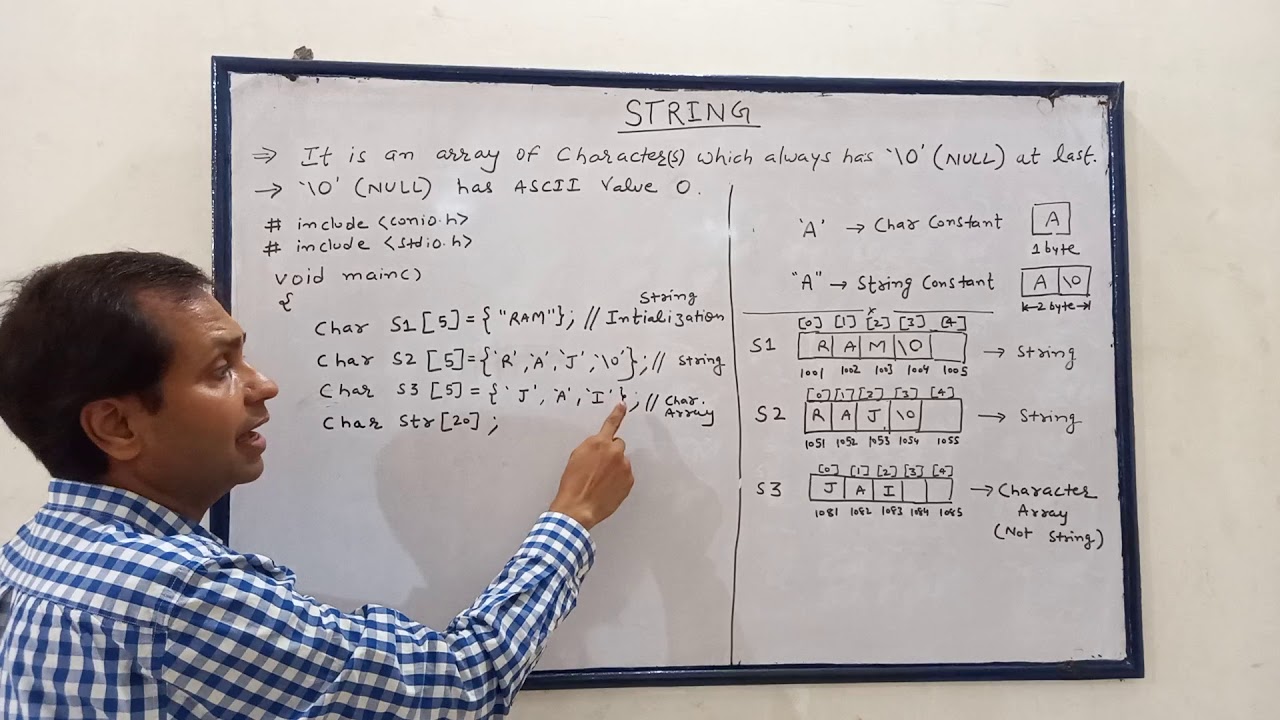 STRING
⇒ It is an array of Character(s) which always has '\0' (NULL) at last.
→ '\0' (NULL) has ASCII Value 0.
# include <conio.h>
# include <stdio.h>
void main()
{
Char S1[5] = {"RAM"}; // String Intialization
Char S2[5] = {'R','A','J','\0'}; // String
Char S3[5] = {'J','A','I'}; // Char. Array
Char Str[20];
'A' → Char Constant A
1 byte
"A" → String Constant A \0
2 byte
[0] [1] [2] [3] [4]
S1 R A M \0 → String
1001 1002 1003 1004 1005
[0] [1] [2] [3] [4]
S2 R A J \0 → String
1051 1052 1053 1054 1055
[0] [1] [2] [3] [4]
S3 J A I → Character
1081 1082 1083 1084 1085 Array
(Not String)